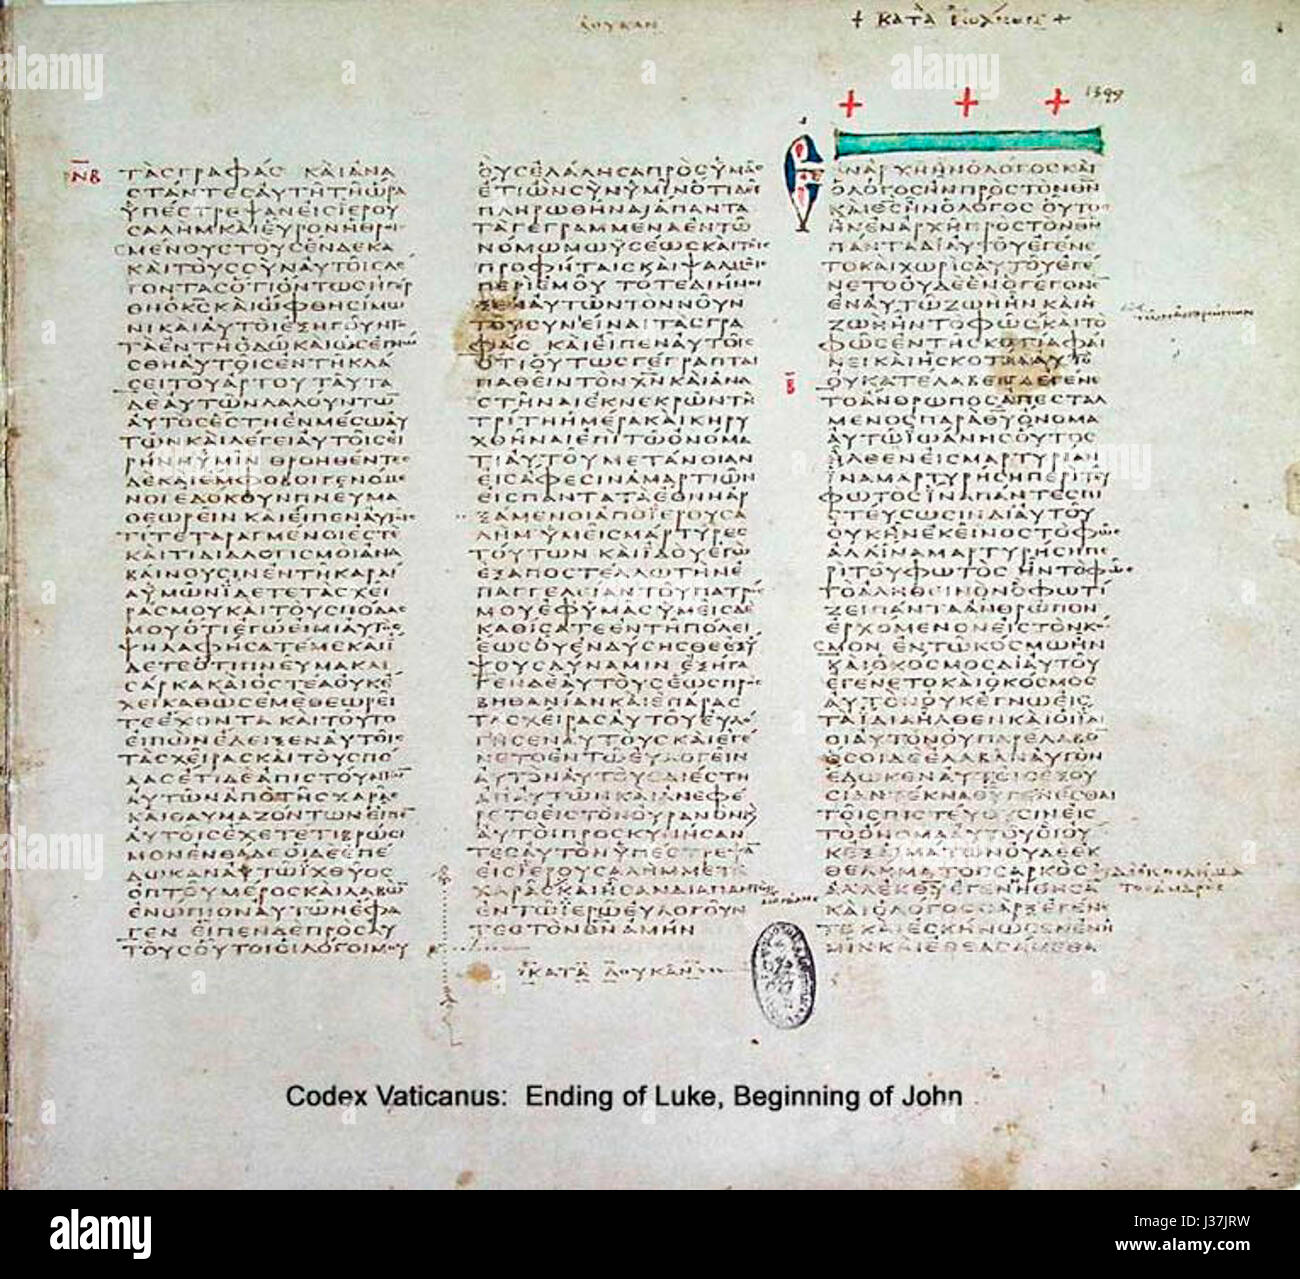 ΛΟΥΚΑΝ
+ ΚΑΤΑ ΙΩΑΝΝΗΝ +
1349
ΝΒ
ΤΑΣ ΓΡΑΦΑΣ ΚΑΙ ΑΝΑ
ΣΤΑΝΤΕΣ ΑΥΤΗ ΤΗ ΩΡΑ
ΥΠΕΣΤΡΕΨΑΝ ΕΙΣ ΙΕΡΟΥ
ΣΑΛΗΜ ΚΑΙ ΕΥΡΟΝ ΗΘΡΟΙ
ΣΜΕΝΟΥΣ ΤΟΥΣ ΕΝΔΕΚΑ
ΚΑΙ ΤΟΥΣ ΣΥΝ ΑΥΤΟΙΣ ΛΕ
ΓΟΝΤΑΣ ΟΤΙ ΟΝΤΩΣ ΗΓΕΡ
ΘΗ Ο ΚΣ ΚΑΙ ΩΦΘΗ ΣΙΜΩ
ΝΙ ΚΑΙ ΑΥΤΟΙ ΕΞΗΓΟΥΝΤΟ
ΤΑ ΕΝ ΤΗ ΟΔΩ ΚΑΙ ΩΣ ΕΓΝΩ
ΣΘΗ ΑΥΤΟΙΣ ΕΝ ΤΗ ΚΛΑ
ΣΕΙ ΤΟΥ ΑΡΤΟΥ ΤΑΥΤΑ
ΔΕ ΑΥΤΩΝ ΛΑΛΟΥΝΤΩ
ΑΥΤΟΣ ΕΣΤΗ ΕΝ ΜΕΣΩ ΑΥ
ΤΩΝ ΚΑΙ ΛΕΓΕΙ ΑΥΤΟΙΣ ΕΙ
ΡΗΝΗ ΥΜΙΝ ΘΡΟΗΘΕΝΤΕΣ
ΔΕ ΚΑΙ ΕΜΦΟΒΟΙ ΓΕΝΟΜΕ
ΝΟΙ ΕΔΟΚΟΥΝ ΠΝΕΥΜΑ
ΘΕΩΡΕΙΝ ΚΑΙ ΕΙΠΕΝ ΑΥΤΟΙΣ
ΤΙ ΤΕΤΑΡΑΓΜΕΝΟΙ ΕΣΤΕ
ΚΑΙ ΤΙ ΔΙΑΛΟΓΙΣΜΟΙ ΑΝΑ
ΒΑΙΝΟΥΣΙΝ ΕΝ ΤΗ ΚΑΡΔΙ
Α ΥΜΩΝ ΙΔΕΤΕ ΤΑΣ ΧΕΙ
ΡΑΣ ΜΟΥ ΚΑΙ ΤΟΥΣ ΠΟΔΑΣ
ΜΟΥ ΟΤΙ ΕΓΩ ΕΙΜΙ ΑΥΤΟΣ
ΨΗΛΑΦΗΣΑΤΕ ΜΕ ΚΑΙ Ι
ΔΕΤΕ ΟΤΙ ΠΝΕΥΜΑ ΚΑΙ
ΣΑΡΚΑ ΚΑΙ ΟΣΤΕΑ ΟΥΚ Ε
ΧΕΙ ΚΑΘΩΣ ΕΜΕ ΘΕΩΡΕΙ
ΤΕ ΕΧΟΝΤΑ ΚΑΙ ΤΟΥΤΟ
ΕΙΠΩΝ ΕΔΕΙΞΕΝ ΑΥΤΟΙΣ
ΤΑΣ ΧΕΙΡΑΣ ΚΑΙ ΤΟΥΣ ΠΟ
ΔΑΣ ΕΤΙ ΔΕ ΑΠΙΣΤΟΥΝΤΩΝ
ΑΥΤΩΝ ΑΠΟ ΤΗΣ ΧΑΡΑΣ
ΚΑΙ ΘΑΥΜΑΖΟΝΤΩΝ ΕΙΠΕ
ΑΥΤΟΙΣ ΕΧΕΤΕ ΤΙ ΒΡΩΣΙ
ΜΟΝ ΕΝΘΑΔΕ ΟΙ ΔΕ ΕΠΕ
ΔΩΚΑΝ ΑΥΤΩ ΙΧΘΥΟΣ
ΟΠΤΟΥ ΜΕΡΟΣ ΚΑΙ ΛΑΒΩ
ΕΝΩΠΙΟΝ ΑΥΤΩΝ ΕΦΑ
ΓΕΝ ΕΙΠΕΝ ΔΕ ΠΡΟΣ ΑΥ
ΤΟΥΣ ΟΥΤΟΙ ΟΙ ΛΟΓΟΙ ΜΟΥ
ΟΥΣ ΕΛΑΛΗΣΑ ΠΡΟΣ ΥΜΑΣ
ΕΤΙ ΩΝ ΣΥΝ ΥΜΙΝ ΟΤΙ ΔΕΙ
ΠΛΗΡΩΘΗΝΑΙ ΑΠΑΝΤΑ
ΤΑ ΓΕΓΡΑΜΜΕΝΑ ΕΝ ΤΩ
ΝΟΜΩ ΜΩΥΣΕΩΣ ΚΑΙ ΤΟΙΣ
ΠΡΟΦΗΤΑΙΣ ΚΑΙ ΨΑΛΜΟΙΣ
ΠΕΡΙ ΕΜΟΥ ΤΟΤΕ ΔΙΗΝΟΙ
ΞΕΝ ΑΥΤΩΝ ΤΟΝ ΝΟΥΝ
ΤΟΥ ΣΥΝΕΙΝΑΙ ΤΑΣ ΓΡΑ
ΦΑΣ ΚΑΙ ΕΙΠΕΝ ΑΥΤΟΙΣ
ΟΤΙ ΟΥΤΩΣ ΓΕΓΡΑΠΤΑΙ
ΠΑΘΕΙΝ ΤΟΝ ΧΝ ΚΑΙ ΑΝΑ
ΣΤΗΝΑΙ ΕΚ ΝΕΚΡΩΝ ΤΗ
ΤΡΙΤΗ ΗΜΕΡΑ ΚΑΙ ΚΗΡΥ
ΧΘΗΝΑΙ ΕΠΙ ΤΩ ΟΝΟΜΑ
ΤΙ ΑΥΤΟΥ ΜΕΤΑΝΟΙΑΝ
ΕΙΣ ΑΦΕΣΙΝ ΑΜΑΡΤΙΩΝ
ΕΙΣ ΠΑΝΤΑ ΤΑ ΕΘΝΗ ΑΡ
ΞΑΜΕΝΟΙ ΑΠΟ ΙΕΡΟΥΣΑ
ΛΗΜ ΥΜΕΙΣ ΜΑΡΤΥΡΕΣ
ΤΟΥΤΩΝ ΚΑΙ ΙΔΟΥ ΕΓΩ
ΕΞΑΠΟΣΤΕΛΛΩ ΤΗΝ Ε
ΠΑΓΓΕΛΕΙΑΝ ΤΟΥ ΠΑΤΡΟΣ
ΜΟΥ ΕΦ ΥΜΑΣ ΥΜΕΙΣ ΔΕ
ΚΑΘΙΣΑΤΕ ΕΝ ΤΗ ΠΟΛΕΙ
ΕΩΣ ΟΥ ΕΝΔΥΣΗΣΘΕ ΕΞ Υ
ΨΟΥΣ ΔΥΝΑΜΙΝ ΕΞΗΓΑ
ΓΕΝ ΔΕ ΑΥΤΟΥΣ ΕΩΣ ΠΡΟΣ
ΒΗΘΑΝΙΑΝ ΚΑΙ ΕΠΑΡΑΣ
ΤΑΣ ΧΕΙΡΑΣ ΑΥΤΟΥ ΕΥΛΟ
ΓΗΣΕΝ ΑΥΤΟΥΣ ΚΑΙ ΕΓΕ
ΝΕΤΟ ΕΝ ΤΩ ΕΥΛΟΓΕΙΝ
ΑΥΤΟΝ ΑΥΤΟΥΣ ΔΙΕΣΤΗ
ΑΠ ΑΥΤΩΝ ΚΑΙ ΑΝΕΦΕ
ΡΕΤΟ ΕΙΣ ΤΟΝ ΟΥΡΑΝΟΝ Κ
ΑΥΤΟΙ ΠΡΟΣΚΥΝΗΣΑΝ
ΤΕΣ ΑΥΤΟΝ ΥΠΕΣΤΡΕΨΑ
ΕΙΣ ΙΕΡΟΥΣΑΛΗΜ ΜΕΤΑ
ΧΑΡΑΣ ΚΑΙ ΗΣΑΝ ΔΙΑ ΠΑΝΤΟΣ
ΕΝ ΤΩ ΙΕΡΩ ΕΥΛΟΓΟΥΝ
ΤΕΣ ΤΟΝ ΘΝ ΑΜΗΝ
ΚΑΤΑ ΛΟΥΚΑΝ
ΕΝ ΑΡΧΗ ΗΝ Ο ΛΟΓΟΣ ΚΑΙ
Ο ΛΟΓΟΣ ΗΝ ΠΡΟΣ ΤΟΝ ΘΝ
ΚΑΙ ΘΣ ΗΝ Ο ΛΟΓΟΣ ΟΥΤΟΣ
ΗΝ ΕΝ ΑΡΧΗ ΠΡΟΣ ΤΟΝ ΘΝ
ΠΑΝΤΑ ΔΙ ΑΥΤΟΥ ΕΓΕΝΕ
ΤΟ ΚΑΙ ΧΩΡΙΣ ΑΥΤΟΥ ΕΓΕ
ΝΕΤΟ ΟΥΔΕ ΕΝ Ο ΓΕΓΟΝΕ
ΕΝ ΑΥΤΩ ΖΩΗ ΗΝ ΚΑΙ Η
ΖΩΗ ΗΝ ΤΟ ΦΩΣ ΚΑΙ ΤΟ
ΦΩΣ ΕΝ ΤΗ ΣΚΟΤΙΑ ΦΑΙ
ΝΕΙ ΚΑΙ Η ΣΚΟΤΙΑ ΑΥΤΟ
ΟΥ ΚΑΤΕΛΑΒΕΝ ΕΓΕΝΕ
ΤΟ ΑΝΘΡΩΠΟΣ ΑΠΕΣΤΑΛ
ΜΕΝΟΣ ΠΑΡΑ ΘΥ ΟΝΟΜΑ
ΑΥΤΩ ΙΩΑΝΗΣ ΟΥΤΟΣ
ΗΛΘΕΝ ΕΙΣ ΜΑΡΤΥΡΙΑΝ
ΙΝΑ ΜΑΡΤΥΡΗΣΗ ΠΕΡΙ ΤΟΥ
ΦΩΤΟΣ ΙΝΑ ΠΑΝΤΕΣ ΠΙ
ΣΤΕΥΣΩΣΙΝ ΔΙ ΑΥΤΟΥ
ΟΥΚ ΗΝ ΕΚΕΙΝΟΣ ΤΟ ΦΩΣ
ΑΛΛ ΙΝΑ ΜΑΡΤΥΡΗΣΗ ΠΕ
ΡΙ ΤΟΥ ΦΩΤΟΣ ΗΝ ΤΟ ΦΩΣ
ΤΟ ΑΛΗΘΕΙΝΟΝ Ο ΦΩΤΙ
ΖΕΙ ΠΑΝΤΑ ΑΝΘΡΩΠΟΝ
ΕΡΧΟΜΕΝΟΝ ΕΙΣ ΤΟΝ ΚΟ
ΣΜΟΝ ΕΝ ΤΩ ΚΟΣΜΩ ΗΝ
ΚΑΙ Ο ΚΟΣΜΟΣ ΔΙ ΑΥΤΟΥ
ΕΓΕΝΕΤΟ ΚΑΙ Ο ΚΟΣΜΟΣ
ΑΥΤΟΝ ΟΥΚ ΕΓΝΩ ΕΙΣ
ΤΑ ΙΔΙΑ ΗΛΘΕΝ ΚΑΙ ΟΙ ΙΔΙ
ΟΙ ΑΥΤΟΝ ΟΥ ΠΑΡΕΛΑΒΟ
ΟΣΟΙ ΔΕ ΕΛΑΒΑΝ ΑΥΤΟΝ
ΕΔΩΚΕΝ ΑΥΤΟΙΣ ΕΞΟΥ
ΣΙΑΝ ΤΕΚΝΑ ΘΥ ΓΕΝΕΣΘΑΙ
ΤΟΙΣ ΠΙΣΤΕΥΟΥΣΙΝ ΕΙΣ
ΤΟ ΟΝΟΜΑ ΑΥΤΟΥ ΟΙ ΟΥ
Κ ΕΞ ΑΙΜΑΤΩΝ ΟΥΔΕ ΕΚ
ΘΕΛΗΜΑΤΟΣ ΣΑΡΚΟΣ
ΑΛΛ ΕΚ ΘΥ ΕΓΕΝΗΘΗΣΑ
ΚΑΙ Ο ΛΟΓΟΣ ΣΑΡΞ ΕΓΕΝΕ
ΤΟ ΚΑΙ ΕΣΚΗΝΩΣΕΝ ΕΝ Η
ΜΙΝ ΚΑΙ ΕΘΕΑΣΑΜΕΘΑ
ΤΩΝ ΑΝΘΡΩΠΩΝ
Β
ΟΥΔΕ ΕΚ ΘΕΛΗΜΑ
ΤΟΣ ΑΝΔΡΟΣ
Codex Vaticanus: Ending of Luke, Beginning of John
alamy
Image ID: J37JRW
www.alamy.com